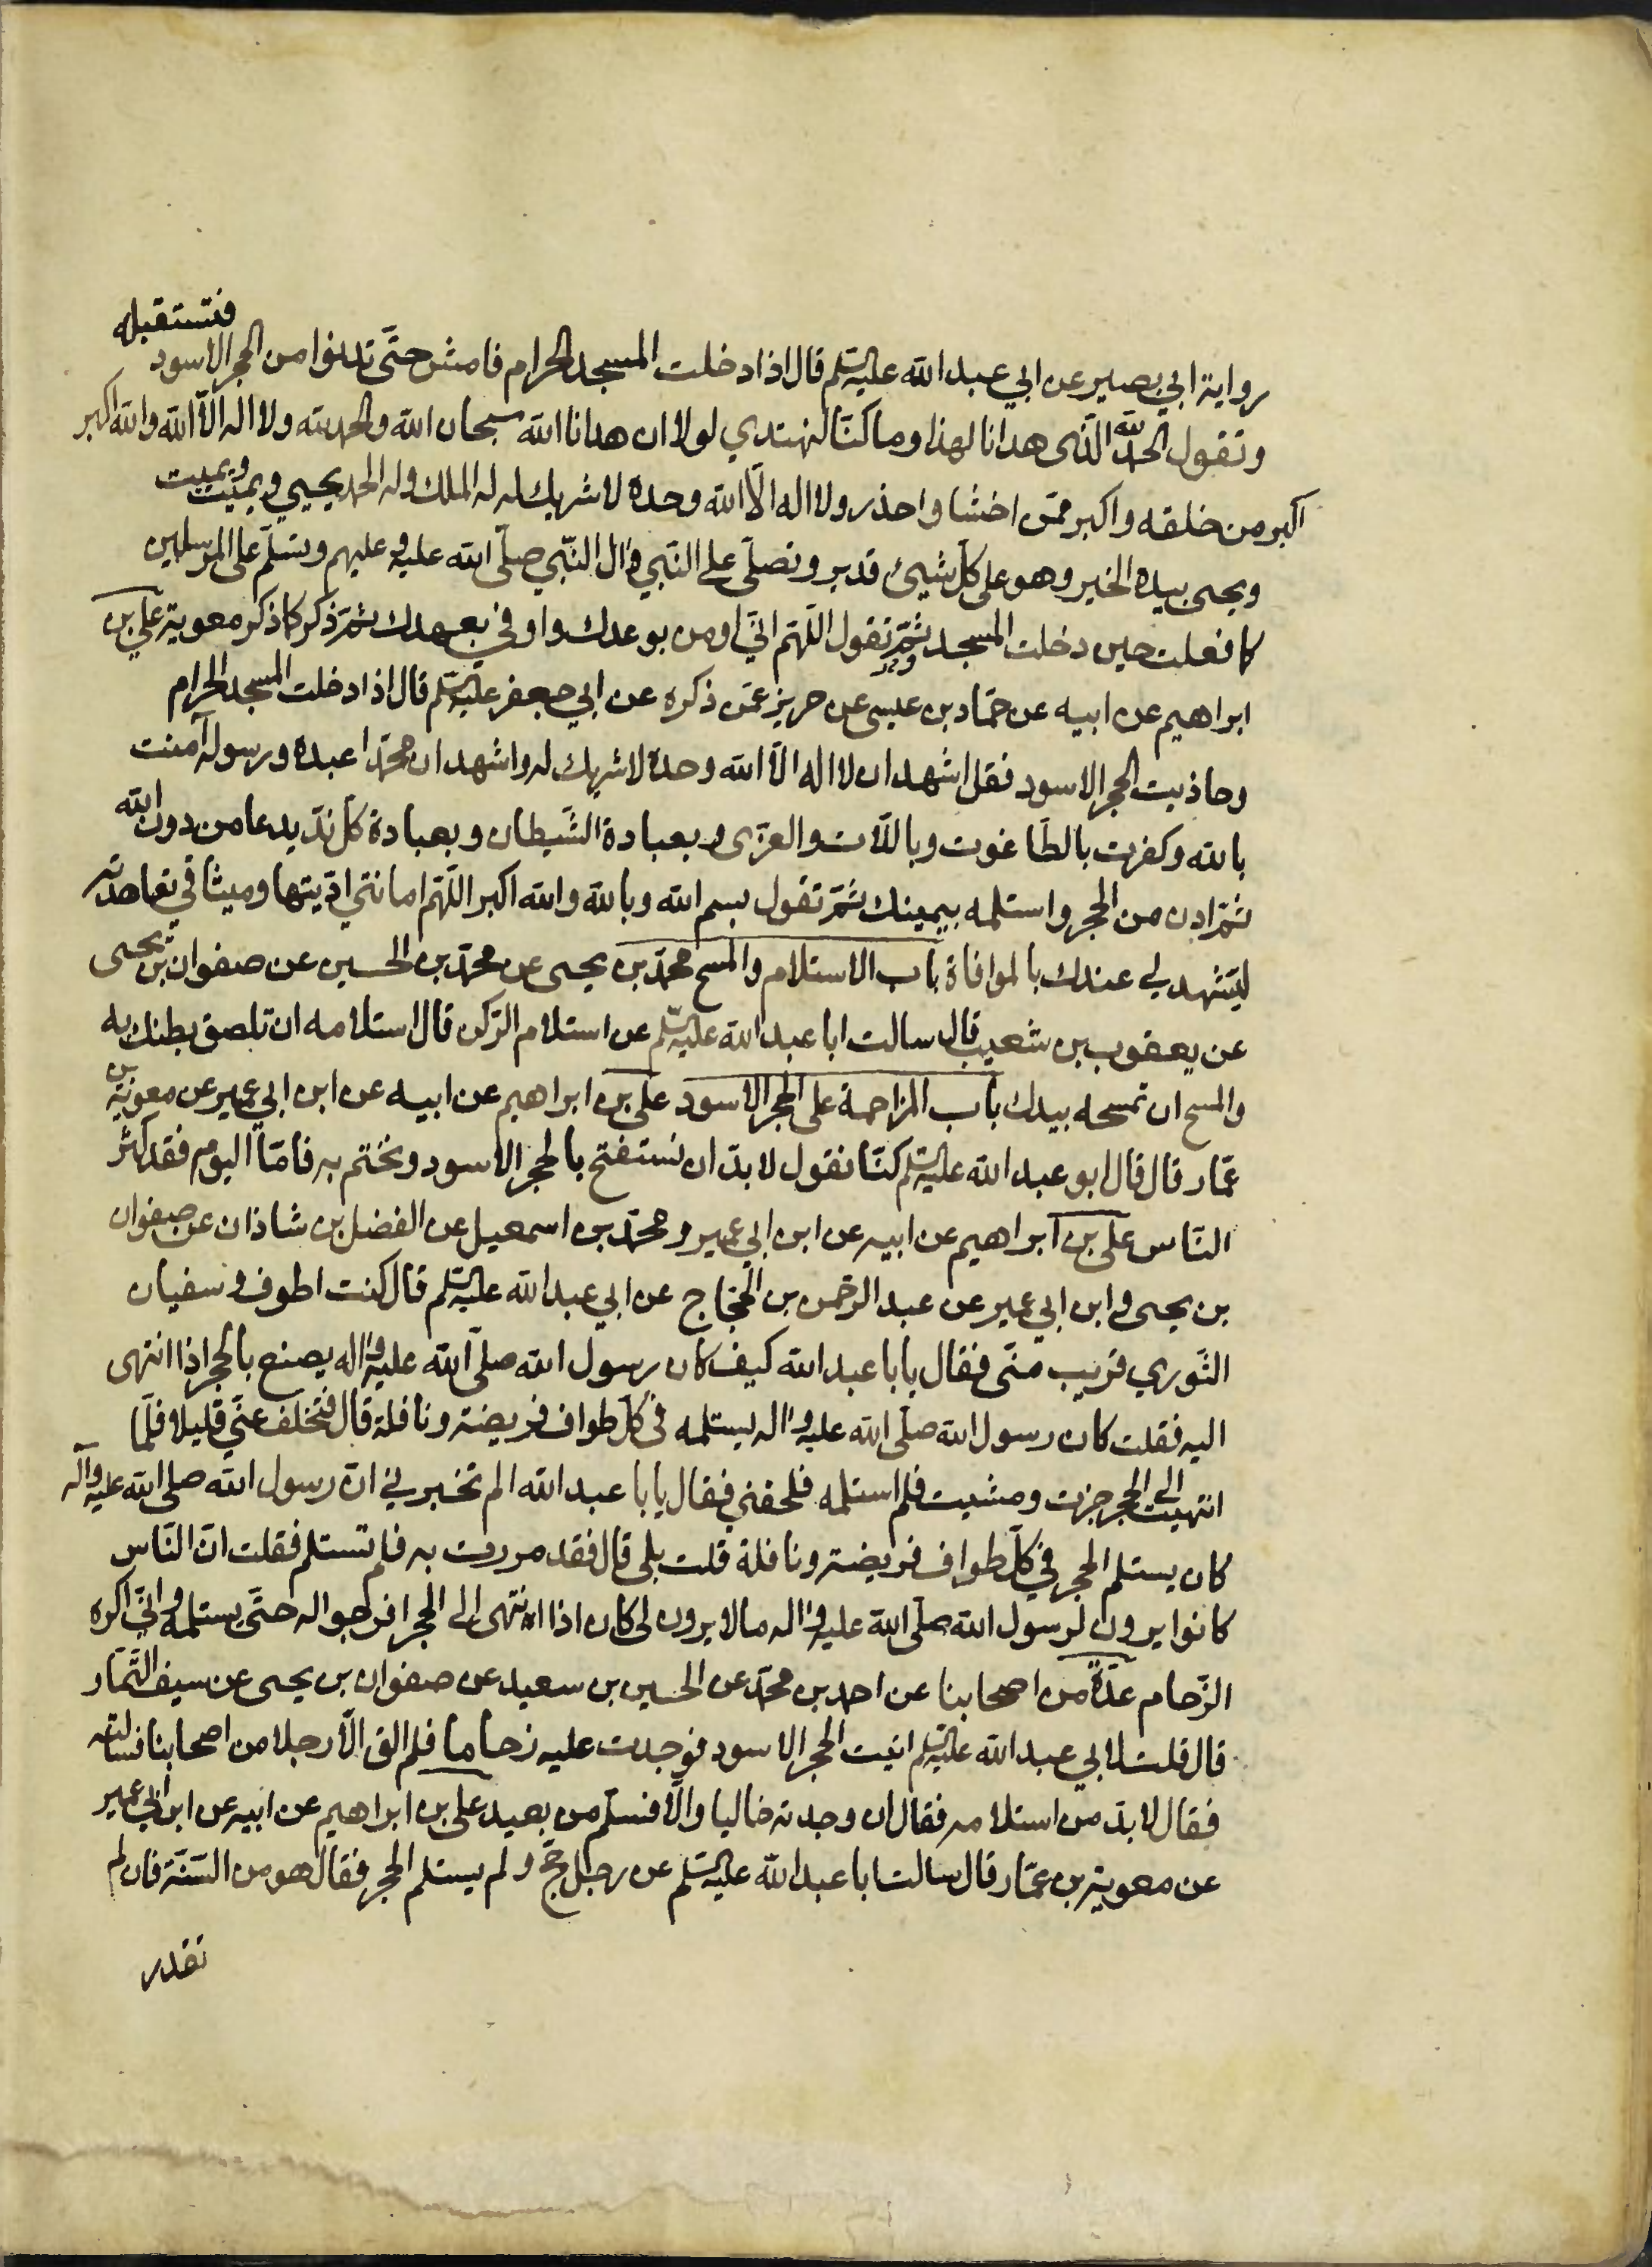 رواية ابي بصير عن ابي عبد الله عليه السلم قال اذا دخلت المسجد الحرام فامش حتّى تدنوا من الحجر الاسود فتستقبله
وتقول الحمد لله الّذى هدانا لهذا وما كنّا لنهتدي لولا ان هدانا الله سبحان الله والحمد لله ولا اله الّا الله والله اكبر
اكبر من خلقه واكبر ممّن اخشا واحذر ولا اله الّا الله وحده لا شريك له له الملك وله الحمد يحيي ويميت ويميت
ويحيى بيده الخير وهو على كلّ شيئ قدير وتصلّى على النّبي وال النّبي صلّى الله عليه وعليهم وتسلّم على المرسلين
كما فعلت حين دخلت المسجد ثمّ وتقول اللّهمّ انّي اومن بوعدك واوفي بعهدك ثمّ ذكر كما ذكر معوية علي بن
ابراهيم عن ابيه عن حمّاد بن عيسى عن حريز عمّن ذكره عن ابي جعفر عليه السلم قال اذا دخلت المسجد الحرام
وحاذيت الحجر الاسود فقل اشهد ان لا اله الّا الله وحده لا شريك له واشهد ان محمّدا عبده ورسوله آمنت
بالله وكفرت بالطّاغوت وباللّات والعزّى وبعبادة الشّيطان وبعبادة كلّ ندّ يدعا من دون الله
ثمّ ادن من الحجر واستلمه بيمينك ثمّ تقول بسم الله وبالله والله اكبر اللّهمّ امانتي ادّيتها وميثاقي تعاهدته
ليشهد لي عندك بالموافاة باب الاستلام والمسح محمّد بن يحيى عن محمّد بن الحسين عن صفوان بن يحيى
عن يعقوب بن شعيب قال سالت ابا عبد الله عليه السلم عن استلام الرّكن قال استلامه ان تلصق بطنك به
والمسح ان تمسحه بيدك باب المزاحمة على الحجر الاسود علي بن ابراهيم عن ابيه عن ابن ابي عمير عن معوية بن
عمّار قال قال ابو عبد الله عليه السلم كنّا نقول لا بدّ ان نستفتح بالحجر الاسود ونختم به فامّا اليوم فقد كثر
النّاس علي بن ابراهيم عن ابيه عن ابن ابي عمير ومحمّد بن اسمعيل عن الفضل بن شاذان عن صفوان
بن يحيى وابن ابي عمير عن عبد الرّحمن بن الحجّاج عن ابي عبد الله عليه السلم قال كنت اطوف وسفيان
الثّوري قريب منّى فقال يابا عبد الله كيف كان رسول الله صلّى الله عليه واله يصنع بالحجر اذا انتهى
اليه فقلت كان رسول الله صلّى الله عليه واله يستلمه في كلّ طواف فريضة ونافلة قال فتخلف عنّي قليلا فلمّا
انتهيت الى الحجر جزت ومشيت فلم استلمه فلحقني فقال يابا عبد الله الم تخبرني انّ رسول الله صلى الله عليه وآله
كان يستلم الحجر في كلّ طواف فريضة ونافلة قلت بلى قال فقد مررت به فلم تستلم فقلت انّ النّاس
كانوا يرون لرسول الله صلّى الله عليه واله ما لا يرون لى كان اذا انتهى الى الحجر افرجوا له حتّى يستلمه وانّي اكره
الزّحام عدّة من اصحابنا عن احمد بن محمّد عن الحسين بن سعيد عن صفوان بن يحيى عن سيف التّمّار
قال قلت لابي عبد الله عليه السلم اتيت الحجر الاسود فوجدت عليه زحاما فلم الق الّا رجلا من اصحابنا فسالته
فقال لا بدّ من استلامه فقال ان وجدته خاليا والّا فسلّم من بعيد علي بن ابراهيم عن ابيه عن ابن ابي عمير
عن معوية بن عمّار قال سالت ابا عبد الله عليه السلم عن رجل حجّ ولم يستلم الحجر فقال هو من السّنّة فان لم
تقدر